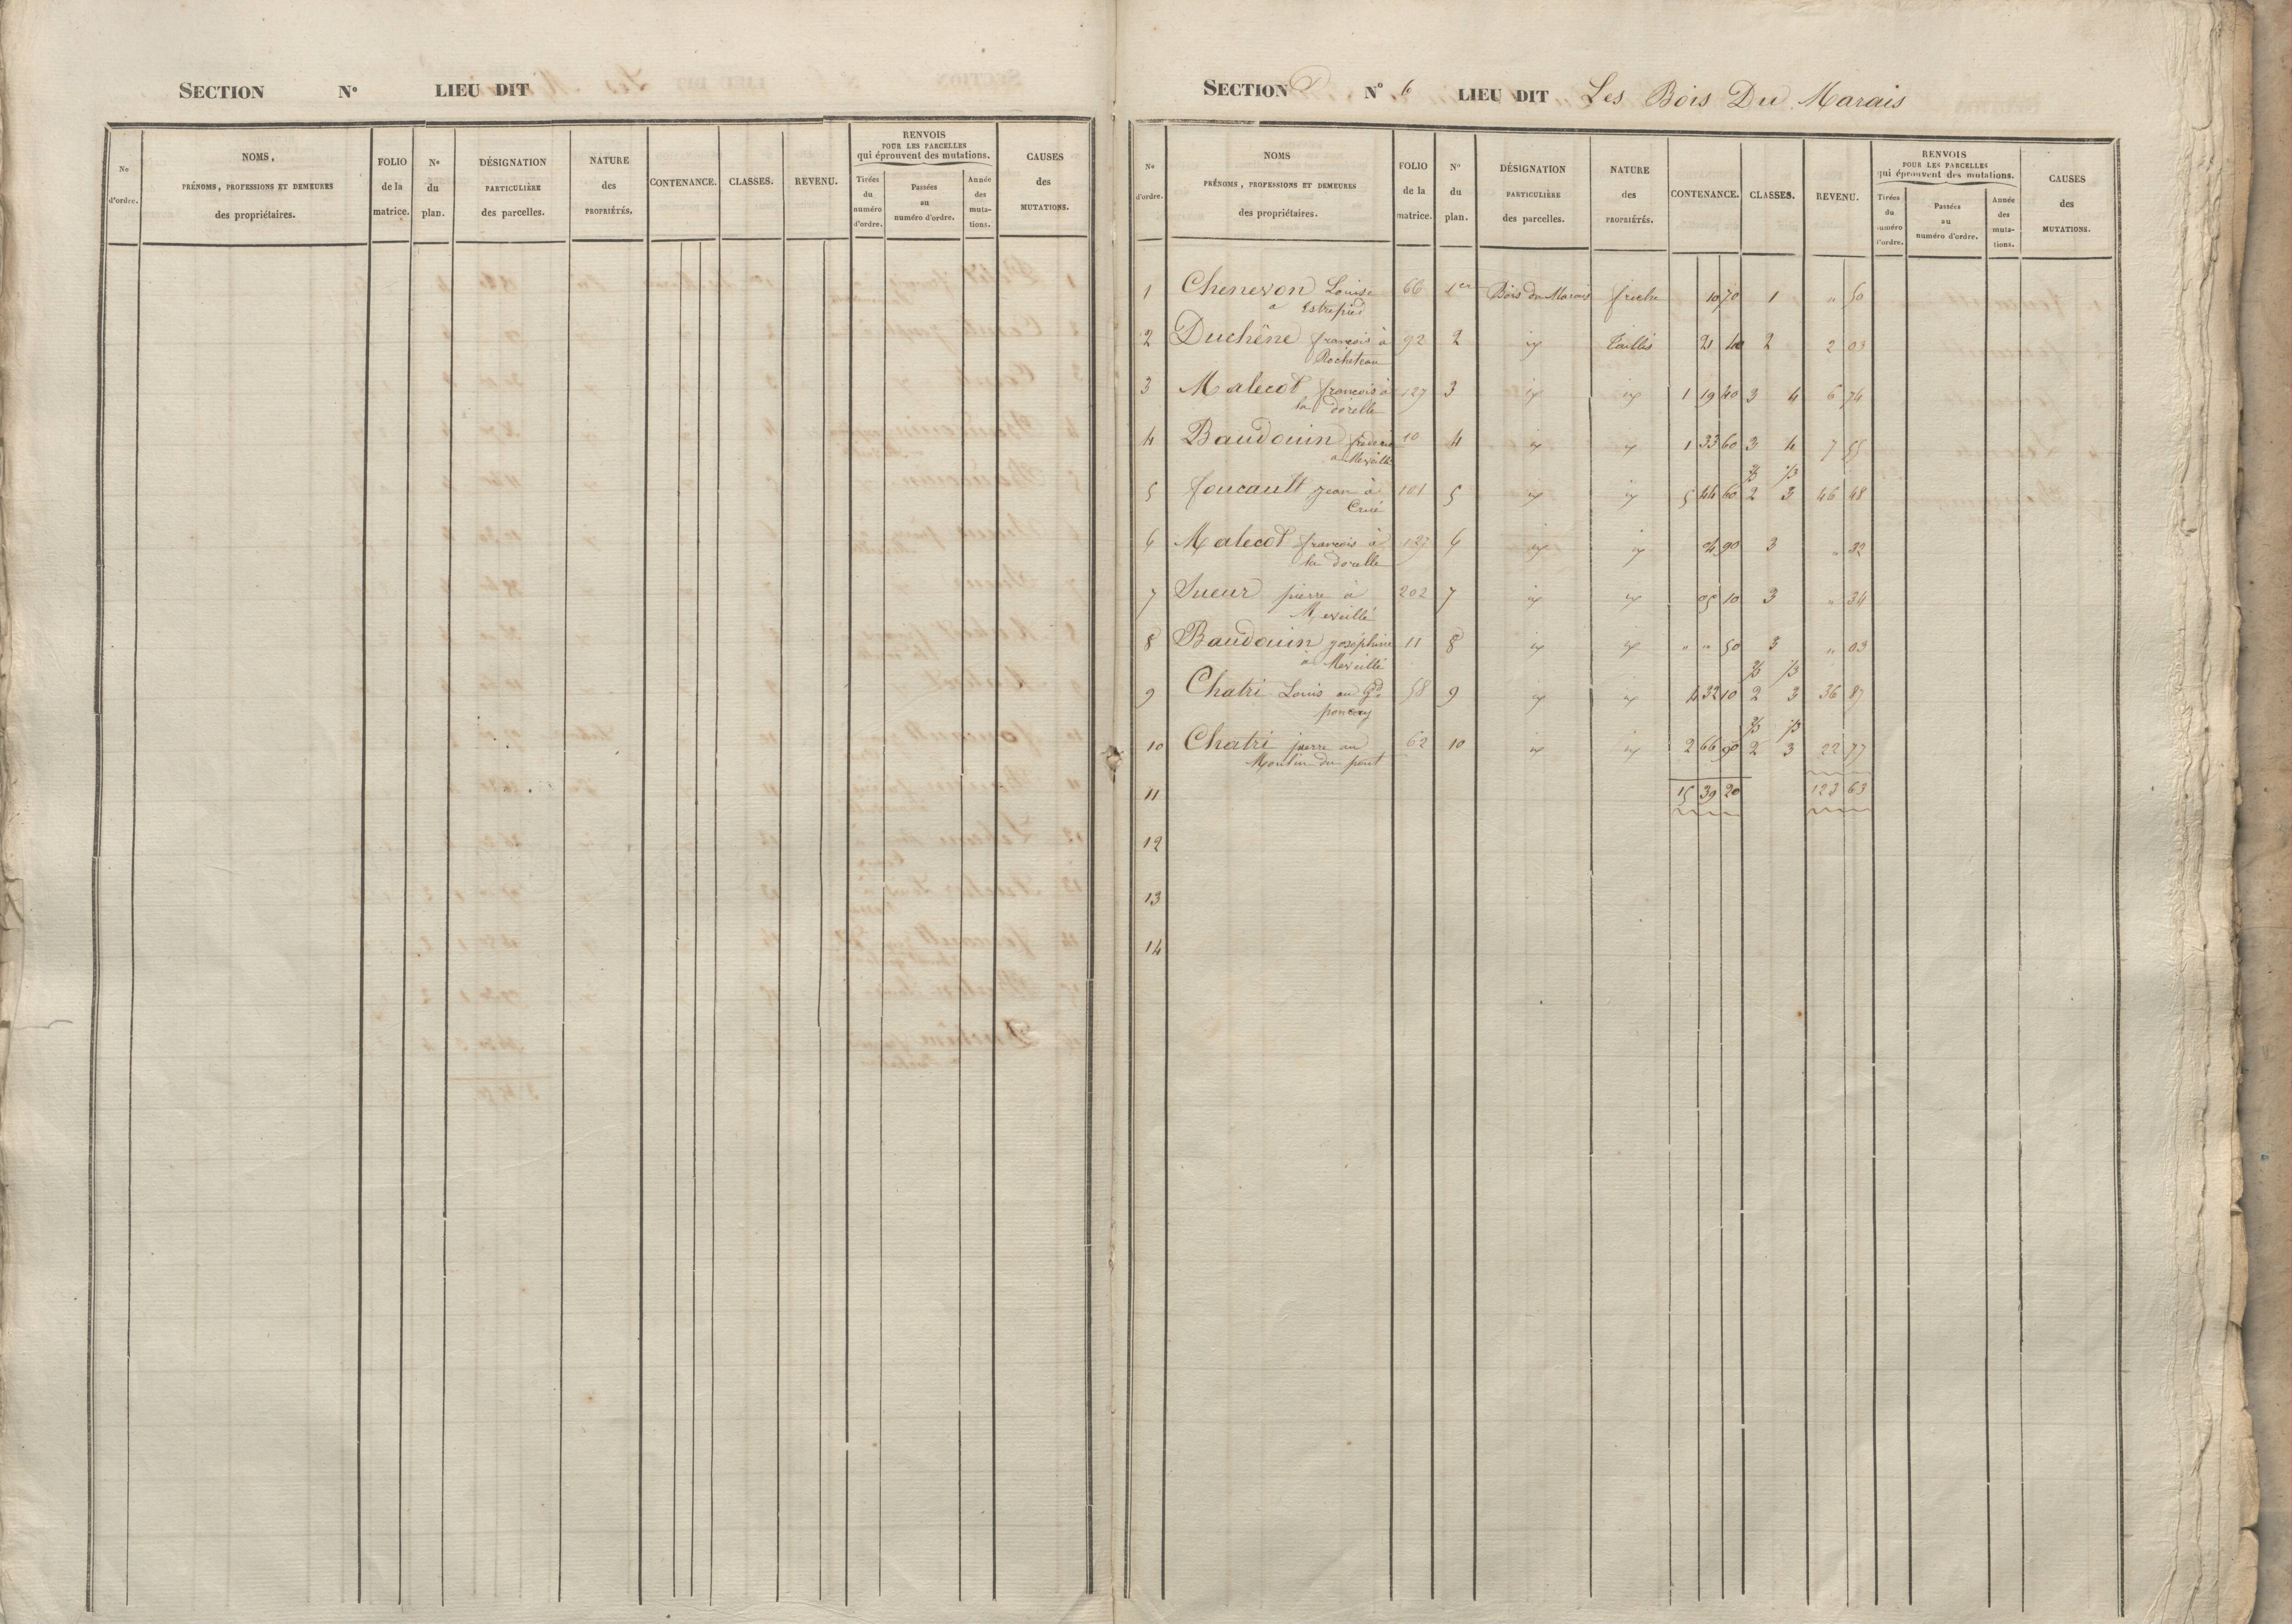 SECTION N° LIEU DIT
No d'ordre. NOMS, PRÉNOMS, PROFESSIONS ET DEMEURES des propriétaires. FOLIO de la matrice. N° du plan. DÉSIGNATION PARTICULIÈRE des parcelles. NATURE des PROPRIÉTÉS. CONTENANCE. CLASSES. REVENU. RENVOIS POUR LES PARCELLES qui éprouvent des mutations. Tirées du numéro d'ordre. Passées au numéro d'ordre. Année des muta- tions. CAUSES des MUTATIONS.
SECTION D N° 6 LIEU DIT Les Bois Du Marais
No d'ordre. NOMS PRÉNOMS, PROFESSIONS ET DEMEURES des propriétaires. FOLIO de la matrice. N° du plan. DÉSIGNATION PARTICULIÈRE des parcelles. NATURE des PROPRIÉTÉS. CONTENANCE. CLASSES. REVENU. RENVOIS POUR LES PARCELLES qui éprouvent des mutations. Tirées du numéro d'ordre. Passées au numéro d'ordre. Année des muta- tions. CAUSES des MUTATIONS.
1 Chenevon Louise 66 1er Bois du Marais friche 10 70 1 " 50
a Estrepied
2 Duchêne françois à 92 2 Taillis 21 40 2 2 03
Rocheteau
3 Malecot françois à 127 3 1 19 40 3 4 6 74
la dorelle
4 Baudouin 10 4 1 33 60 3 4 7 55
a Merveillé
5 foucault jean à 101 5 5 44 60 2 3 46 48
2/3 1/3
6 Malecot françois à 127 6 90 3 " 32
la dorelle
7 Sueur pierre à 202 7 05 10 3 " 34
Merveillé
8 Baudouin joséphine 11 8 " " 50 3 " 03
à Merveillé
9 Chatri Louis au Gd 58 9 4 32 10 2 3 36 87
2/3 1/3
poncay
10 Chatri pierre au 62 10 2 66 90 2 3 22 77
2/3 1/3
Moulin du pont
11 15 39 20 123 63
12
13
14